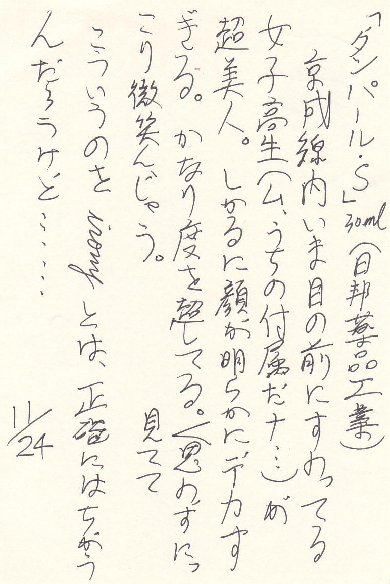 「タンパール・S」30ml(日邦薬品工業)
京成線内いま目の前にすわってる
女子高生(ム、うちの付属だナ…)が
超美人。しかるに顔が明らかにデカす
ぎる。かなり度を超してる。<思わずにっ
こり微笑んじゃう。 見てて
こういうのを irony とは、正確にはちがう
んだろうけど……
11/24